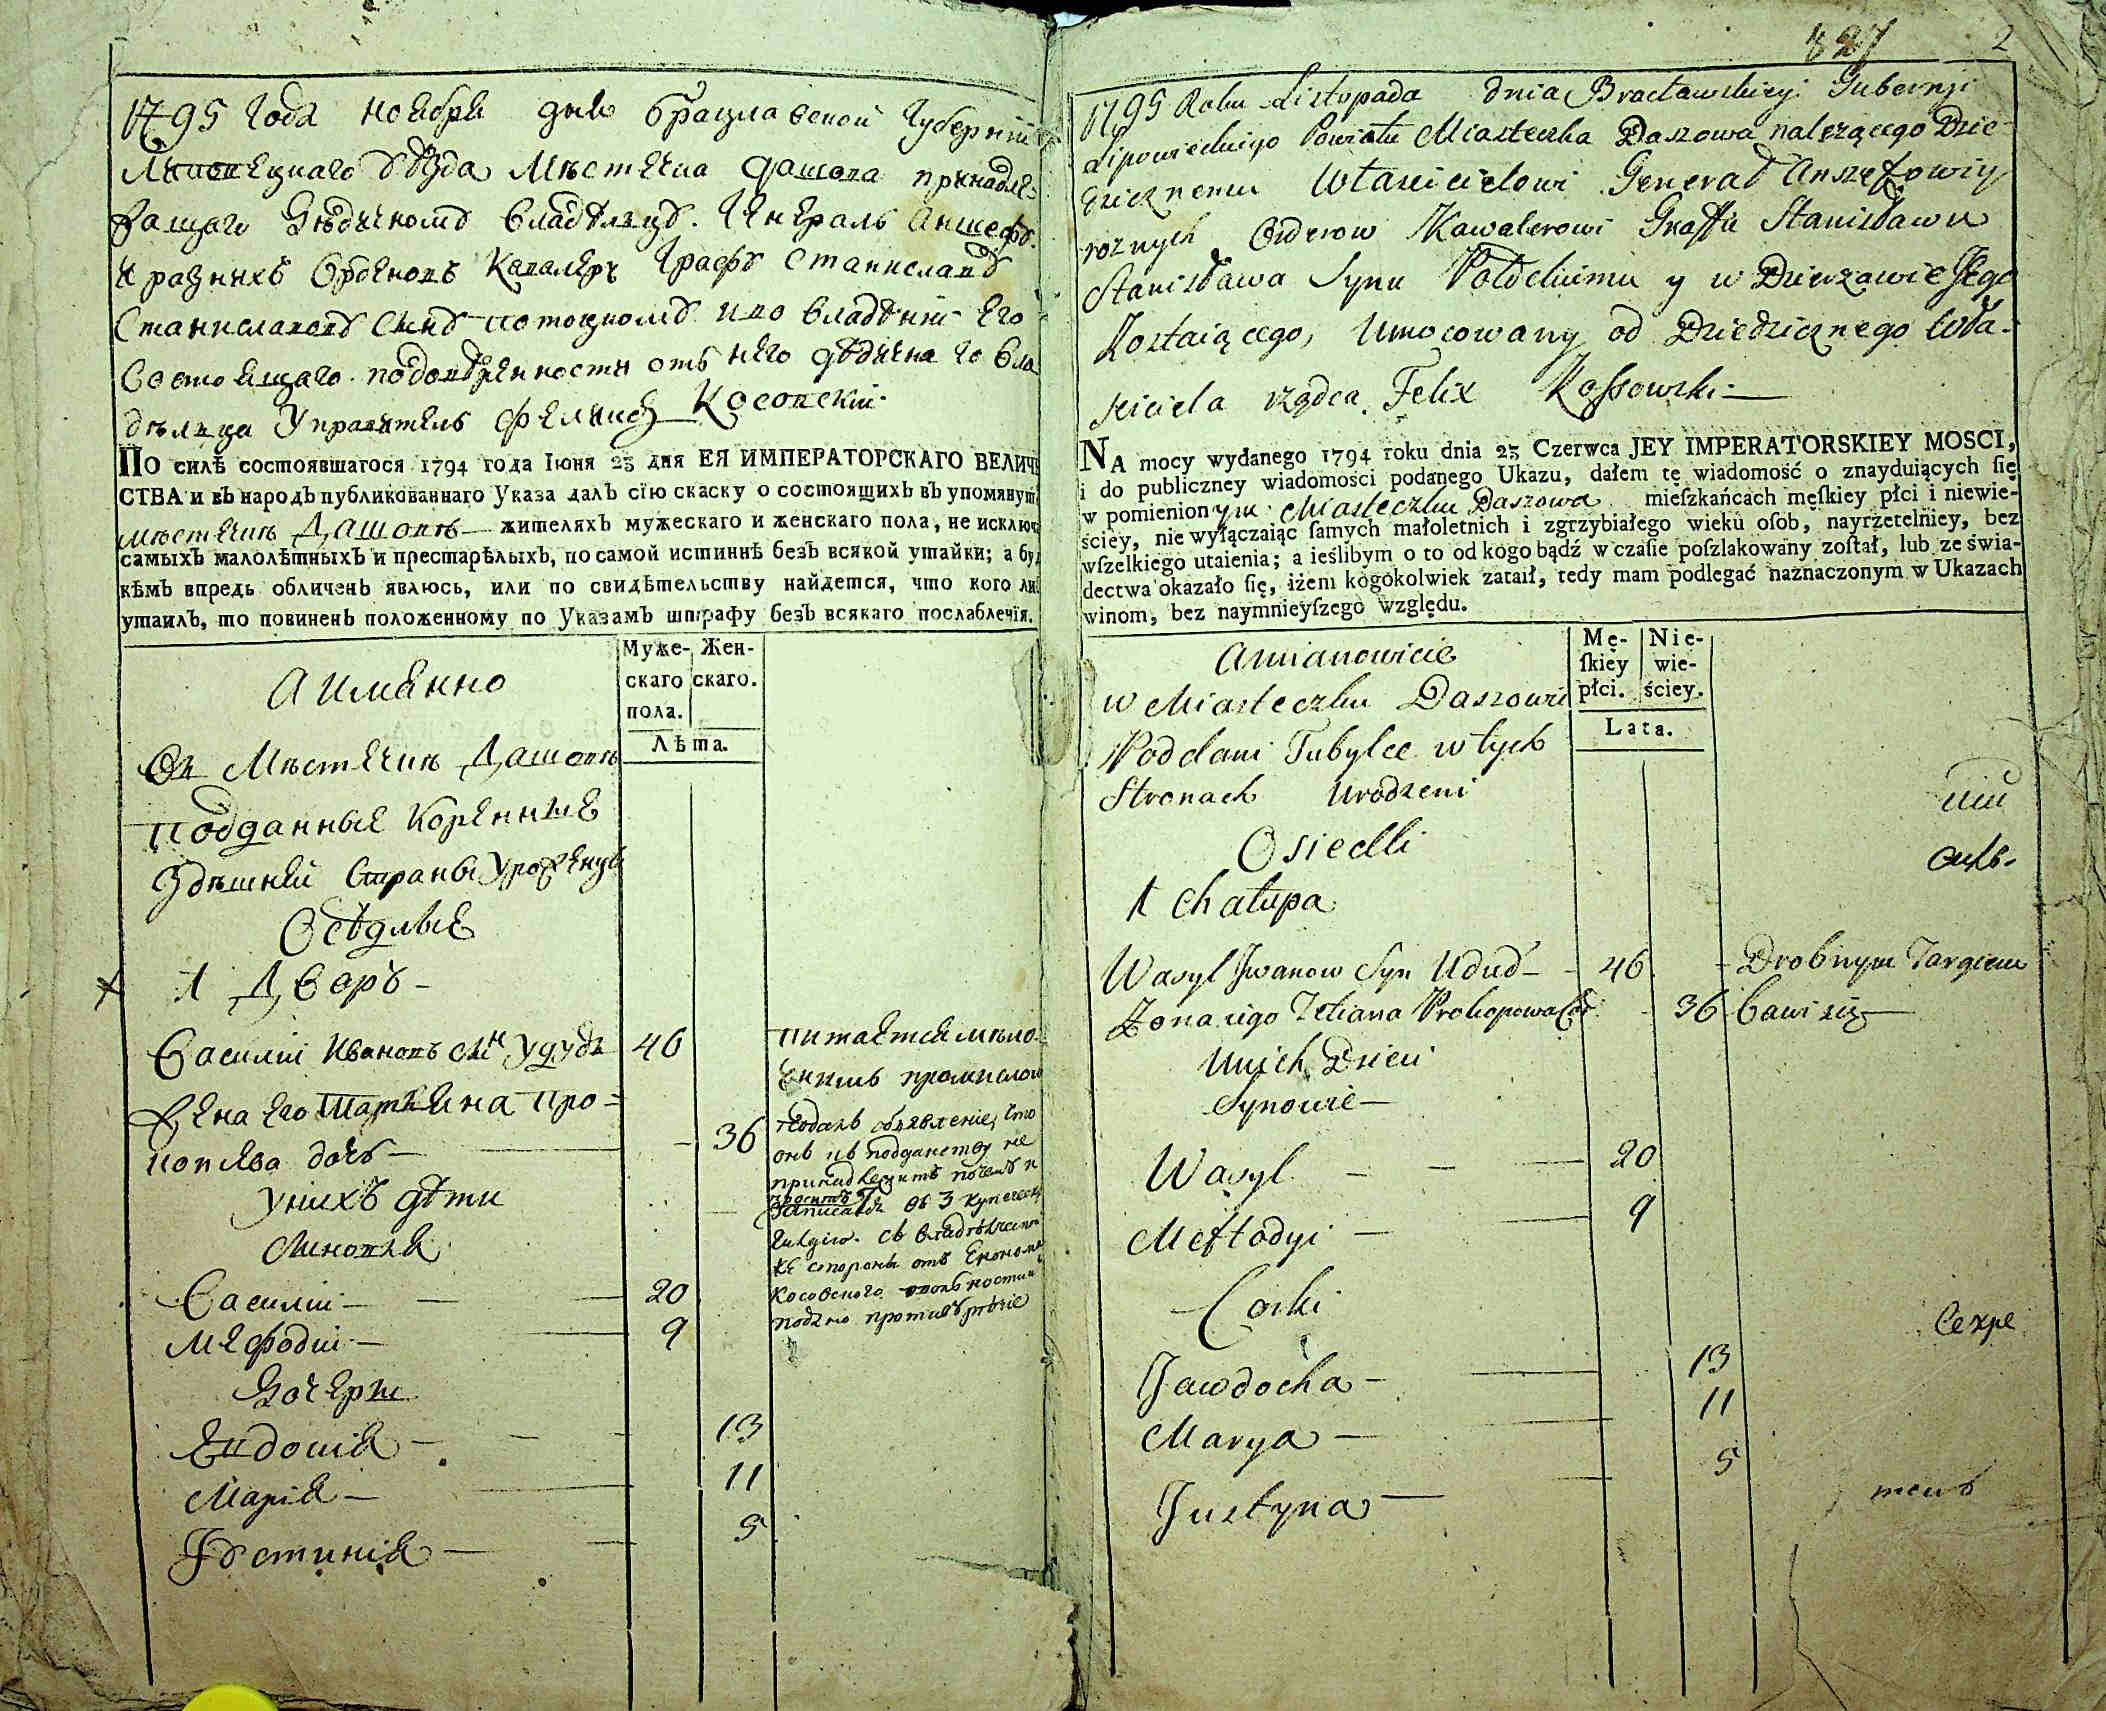 1795 Года ноября дня Брацлавской Губерніи
Липовецкаго уѣзда мѣстечка Дашова принадле-
жащаго Дѣдичному владѣлцу. Генералъ Аншефъ
и разныхъ орденовъ Кавалеръ Графъ Станиславъ
Станиславовъ сынъ Потоцкомъ и во владѣніи его
состоящаго. по довѣренности отъ него дѣдичнаго вла
дѣлца Управитель Феликсъ Косовскій.
По силѣ состоявшагося 1794 года Іюня 23 дня ЕЯ ИМПЕРАТОРСКАГО ВЕЛИЧЕ
СТВА и въ народъ публикованнаго Указа далъ сїю скаску о состоящихъ въ упомянут
мѣстечкѣ Дашовѣ жителяхъ мужескаго и женскаго пола, не исключ
самыхъ малолѣтныхъ и престарѣлыхъ, по самой истиннѣ безъ всякой утайки; а бу
кѣмъ впредь обличенъ явлюсь, или по свидѣтельству найдется, что кого ли
утаилъ, то повиненъ положенному по Указамъ штрафу безъ всякаго послабленїя.
Муже- Жен-
скаго скаго.
пола.
Лѣта.
А имянно
Въ Мѣстечкѣ Дашовѣ
Подданные коренные
Здѣшней страны урожденцы
Осѣдлые
1 Дворъ
Василій Ивановъ сынъ Удудъ 46 питается мѣло-
чнимъ промысломъ
Жена его Татьяна Про-
копьева дочь 36
подалъ объявленіе, что
онъ въ подданству не
принадлежитъ почему и
проситъ
записатся въ 3 купеческ
гилдію. съ владѣлческо
же стороны отъ Економа
Косовского
подано противурѣчіе
У нихъ дѣти
Сыновья
Василій 20
Мефодій 9
Дочери
Евдокія 13
Марія 11
Устинія 5
827 2
1795 Roku Listopada dnia Bracławskiey Gubernji
Lipowieckiego Powiatu Miasteczka Daszowa należącego Dzie-
dzicznemu Własicielowi Generał Anszefowiy
roznych Orderow Kawalerowi Graffu Stanisławu
Stanisława Synu Potockiemu y w Dzierzawie Jego
Zostaiącego, Umocowany od Dziedzicznego Wła-
sciciela rządca Felix Kossowski
NA mocy wydanego 1794 roku dnia 23 Czerwca JEY IMPERATORSKIEY MOSCI,
i do publiczney wiadomości podanego Ukazu, dałem tę wiadomość o znayduiących ſię
w pomienionym Miasteczku Daszowa mieſzkańcach męſkiey płci i niewie-
ściey, nie wyłączaiąc ſamych małoletnich i zgrzybiałego wieku oſob, nayrzetelniey, bez
wſzelkiego utaienia; a ieślibym o to od kogo bądź w czaſie poſzlakowany zoſtał, lub ze świa-
dectwa okazało się, iżem kogokolwiek zataił, tedy mam podlegać naznaczonym w Ukazach
winom, bez naymnieyſzego względu.
Mę- Nie-
ſkiey wie-
płci. ściey.
Lata.
Amianowicie
w Miasteczku Daszowie
Poddani Tubylce w tych
Stronach Urodzeni
Osiedli
1 Chałupa
Wasyl Jwanow Syn Udud 46 Drobnym Targiem
Zona iego Tetiana Prokopowa Cor 36 bawi się
U nich Dzieci
Synowie
Wasyl 20
Meftodyi 9
Corki
Jawdocha 13
Marya 11
Justyna 5
Секре